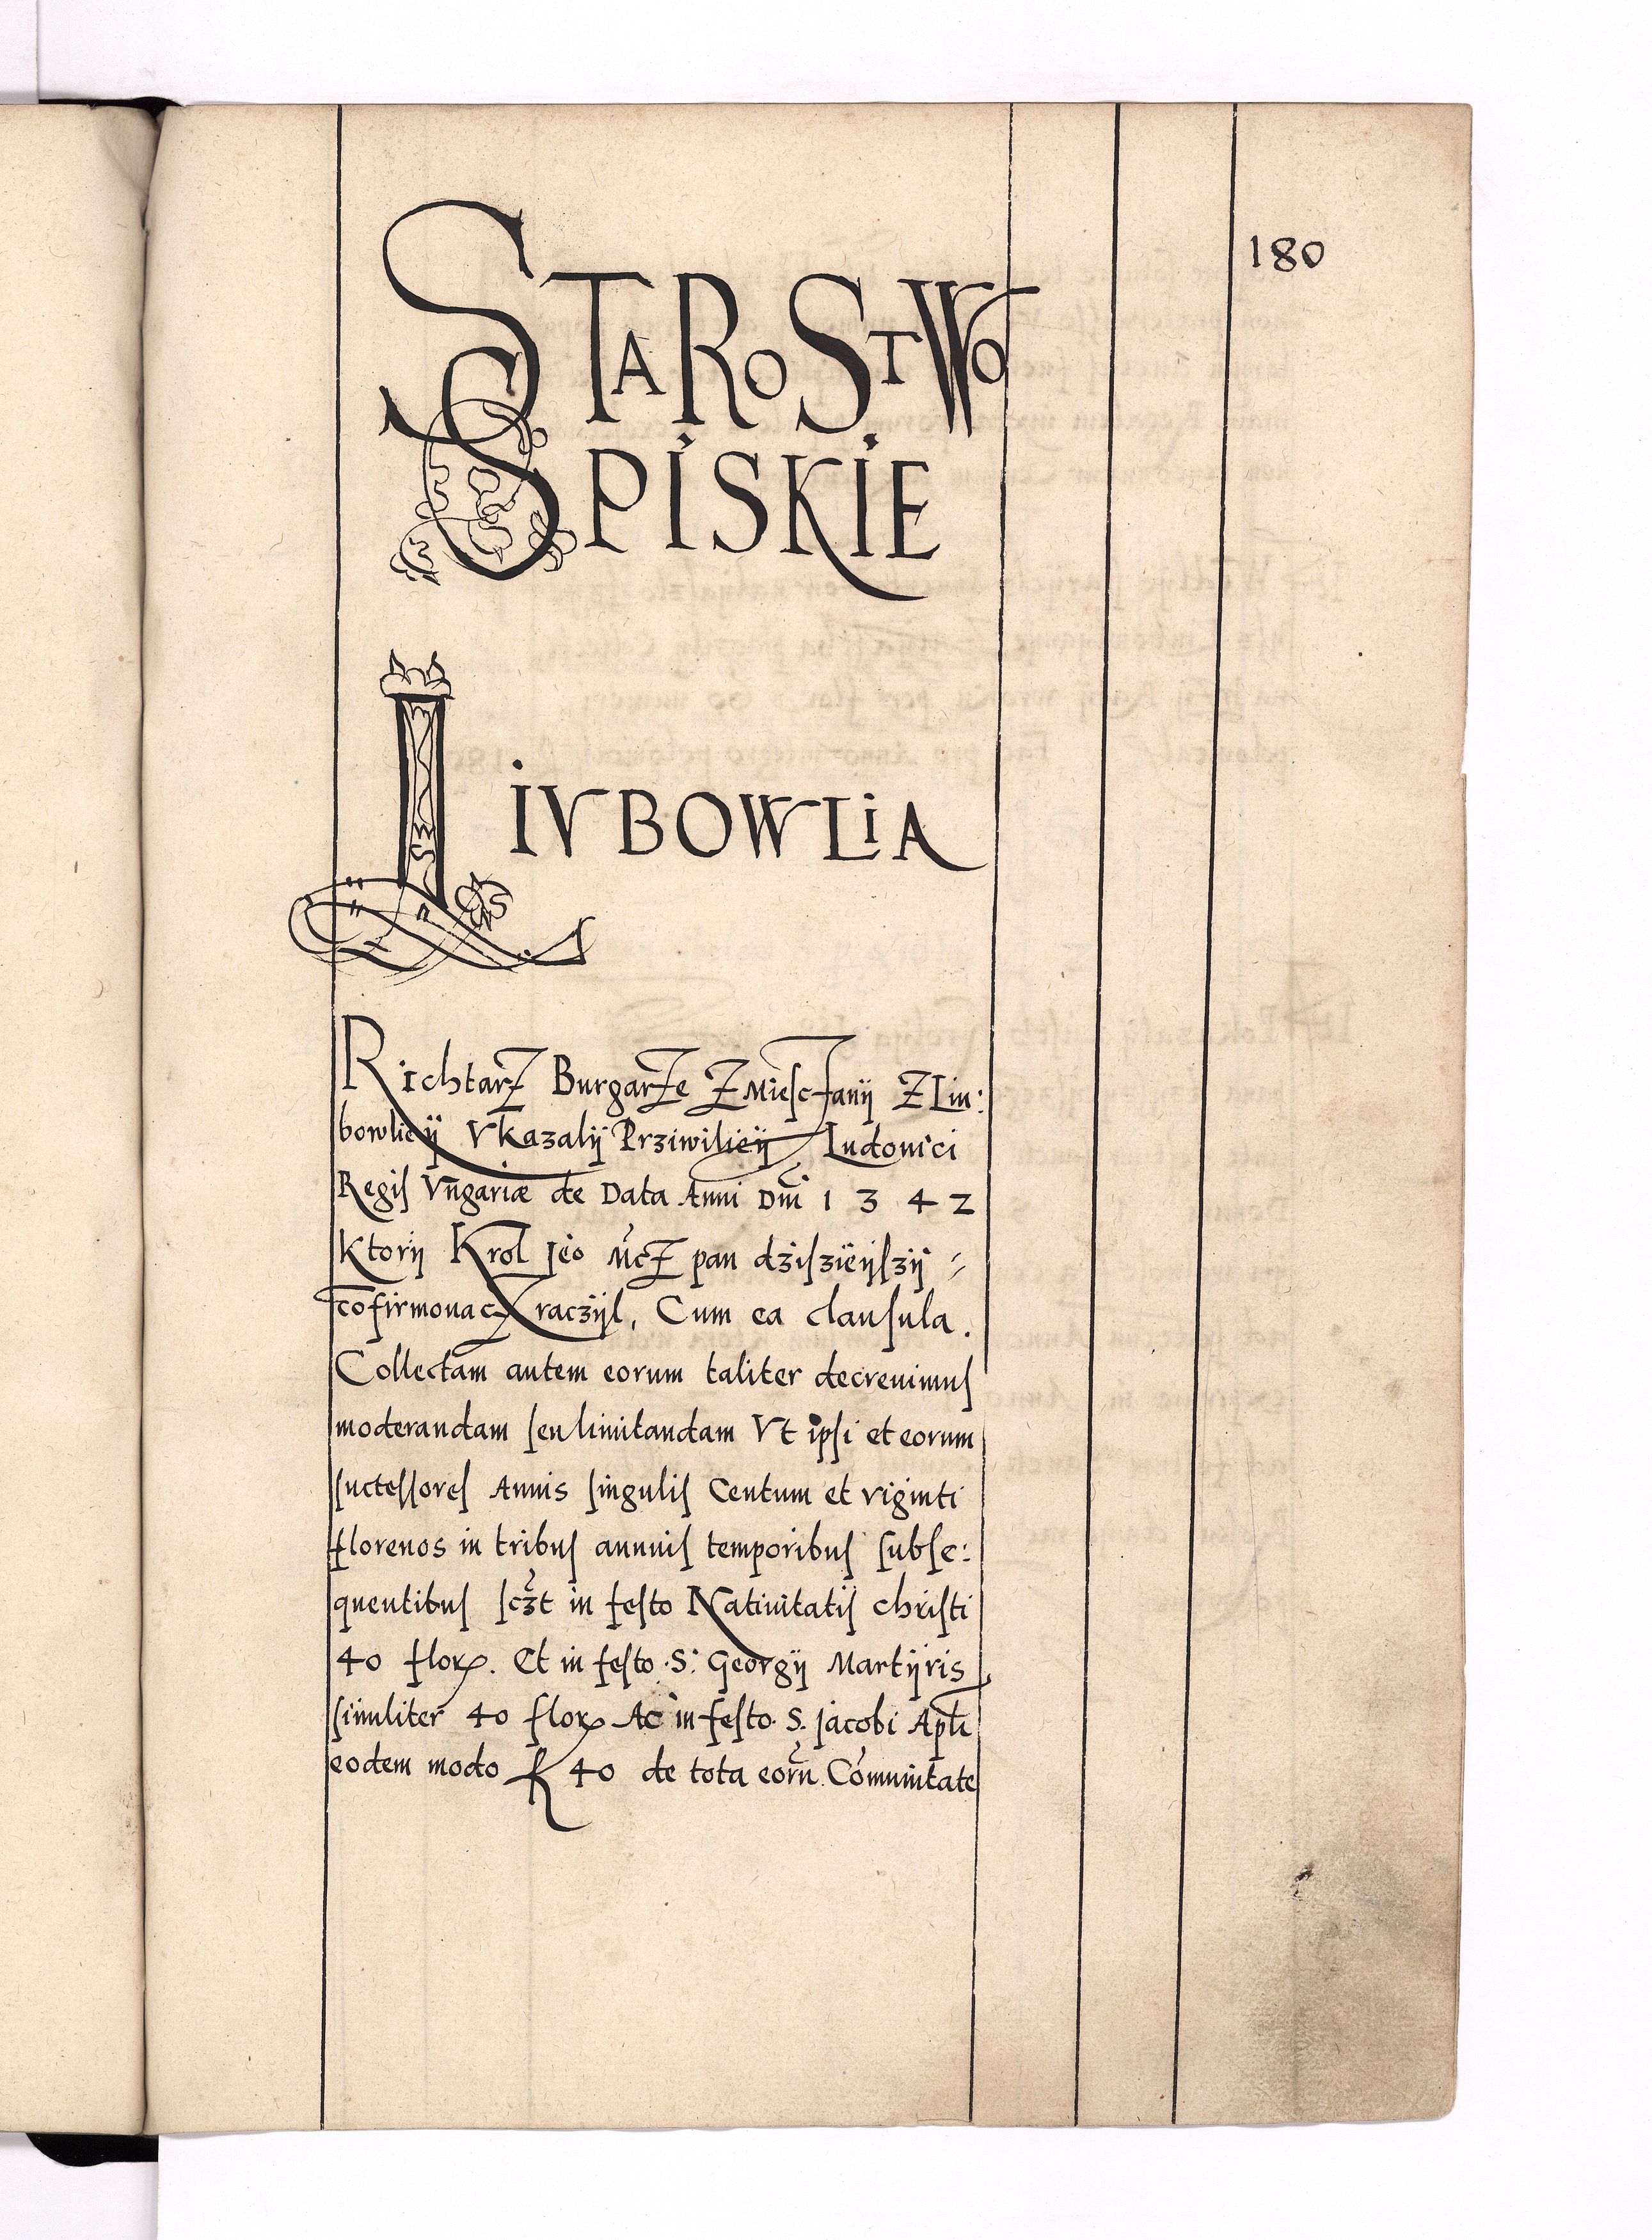 180
STAROSTWO
SPISKIE
LIVBOWLIA
Richtarz Burgarze z Miesczanÿ z Liu:
bowlieÿ Vkazalÿ Prziwilieÿ Ludouici
Regis Vn̄gariæ de Data Anni Dn̄i 1342
Ktorÿ Krol Jeo Mcz pan dziszieÿszÿ =
cōfirmouacz raczÿl, Cum ea clausula.
Collectam autem eorum taliter decreuimus
moderandam seu limitandam Vt ipsi et eorum
suctessores Annis singulis Centum et viginti
florenos in tribus annuis temporibus subse:
quentibus sczt in festo Natiuitatis christi
40 flor. Et in festo S. Georgÿ Martÿris
similiter 40 flor Ac in festo S. Jacobi Apli
eodem modo fl 40 de tota eorū Cōmunitate